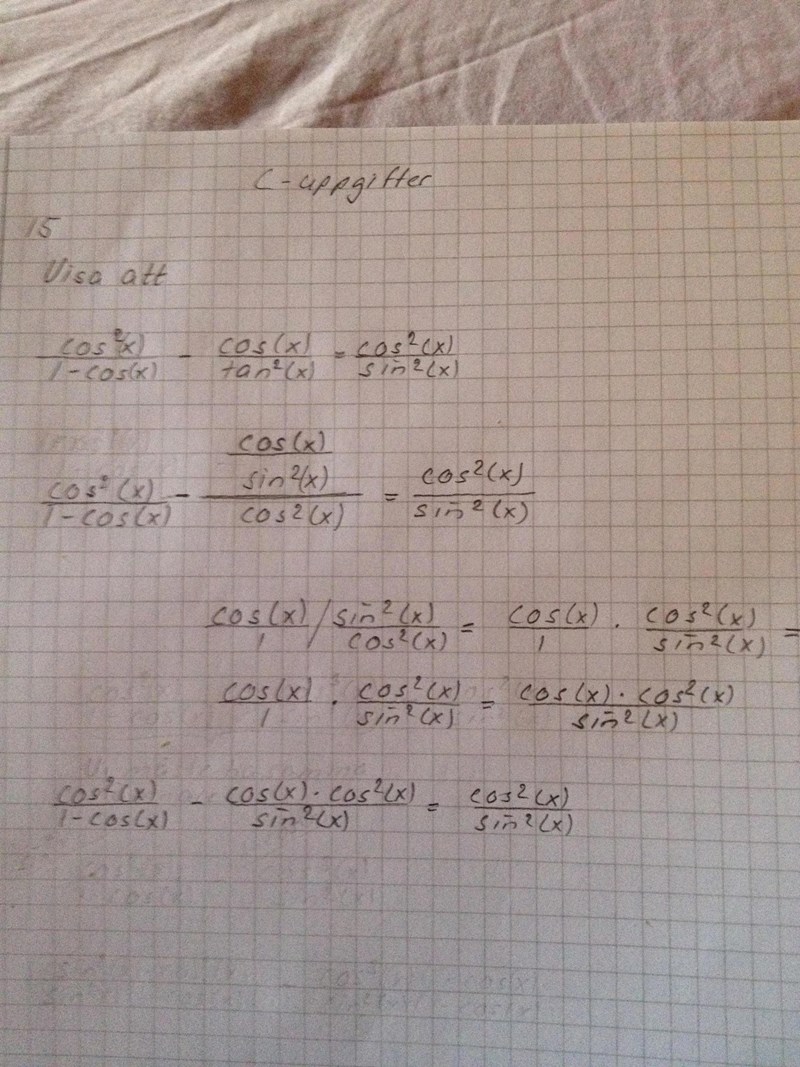 C-uppgifter
15
Visa att
cos²(x)/(1-cos(x)) - cos(x)/tan²(x) = cos²(x)/sin²(x)
cos²(x)/(1-cos(x)) - cos(x)/sin²(x)/cos²(x) = cos²(x)/sin²(x)
cos(x)/1 / sin²(x)/cos²(x) = cos(x)/1 · cos²(x)/sin²(x) =
cos(x)/1 · cos²(x)/sin²(x) = cos(x)·cos²(x)/sin²(x)
cos²(x)/(1-cos(x)) - cos(x)·cos²(x)/sin²(x) = cos²(x)/sin²(x)